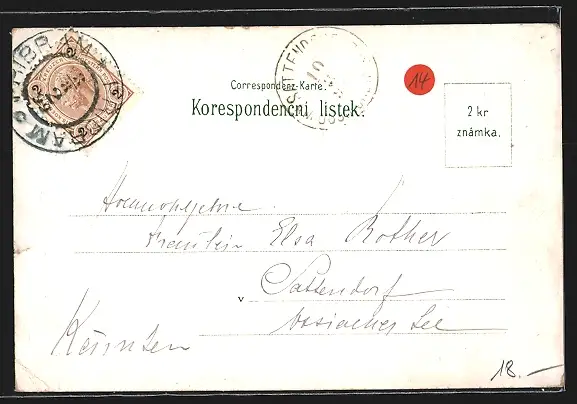 PŘIBRAM
2 2
SATTENDORF
14
Correspondenz-Karte.
Korespondenční listek.
2 kr
známka.
Hochwohlgeboren
Fräulein Elsa Rother
v Sattendorf
Ossiacher See
Kärnten
18.—